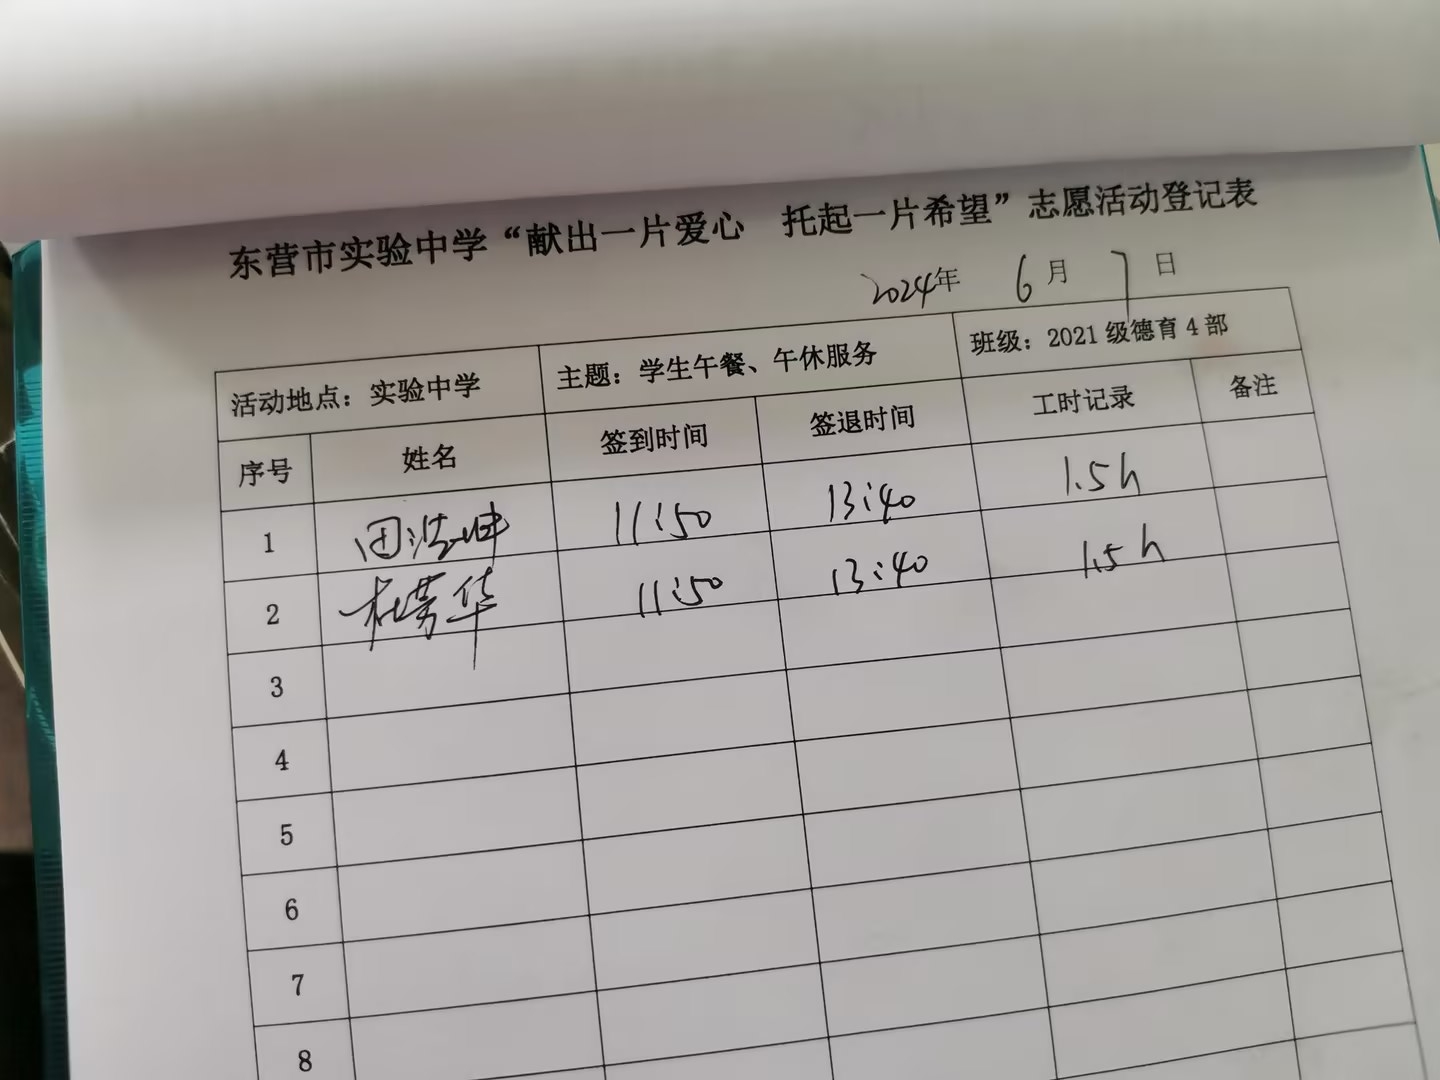 东营市实验中学“献出一片爱心 托起一片希望”志愿活动登记表
2024年 6月 7日
活动地点：实验中学 主题：学生午餐、午休服务 班级：2021级德育4部
序号 姓名 签到时间 签退时间 工时记录 备注
1 田浩坤 11:50 13:40 1.5h
2 杜芳华 11:50 13:40 1.5h
3
4
5
6
7
8